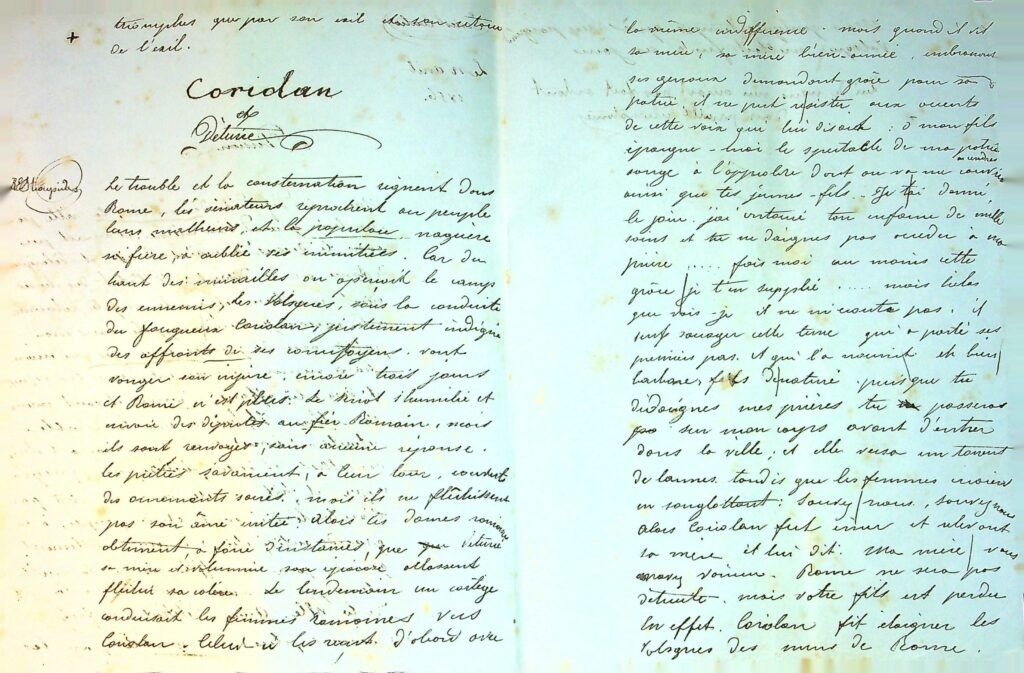 triomphes que par son exil et son retour
de l'exil.
Coriolan
et
Véturie
Le trouble et la consternation règnent dans
Rome, les sénateurs reprochent au peuple
leurs malheurs, et la populace naguère
si fière, a oublié ses inimitiés. Car du
haut des murailles on aperçoit le camp
des ennemis, les Volsques, sous la conduite
du fougueux Coriolan, justement indigné
des affronts de ses concitoyens, vont
venger son injure, encore trois jours
et Rome n'est plus. Le Sénat s'humilie et
envoie des députés au fier Romain, mais
ils sont renvoyés, sans aucune réponse.
les prêtres s'avancent, à leur tour, couverts
des ornements sacrés, mais ils ne fléchissent
pas son âme irritée. Alors les dames romaines
obtinrent, à force d'instances, que Véturie
sa mère et Volumnie son épouse allassent
fléchir sa colère. Le lendemain un cortège
conduisait les femmes Romaines vers
Coriolan. Celui-ci les reçut d'abord avec
la même indifférence mais quand il vit
sa mère, sa mère bien-aimée, embrassant
ses genoux demandant grâce pour sa
patrie, il ne put résister aux accents
de cette voix qui lui disait : ô mon fils
épargne-moi le spectacle de ma patrie
en cendres
songe à l'opprobre dont on va me couvrir
ainsi que tes jeunes fils. Je t'ai donné,
le jour, j'ai entouré ton enfance de mille
soins et tu ne daignes pas accéder à ma
prière ..... fais moi au moins cette
grâce je t'en supplie ..... mais hélas
que vois-je il ne m'écoute pas. il
veut saccager cette terre qui a porté ses
premiers pas. et qui l'a nourrit eh bien
barbare, fils dénaturé puisque tu
dédaignes mes prières tu passeras
sur mon corps avant d'entrer
dans la ville; et elle versa un torrent
de larmes tandis que les femmes criaient
en sanglottant : Sauvez nous, sauvez nous
Alors Coriolan fut ému et relevant
sa mère il lui dit. Ma mère vous
m'avez vaincu. Rome ne sera pas
détruite. mais votre fils est perdu
En effet. Coriolan fit éloigner les
Volsques des murs de Rome.